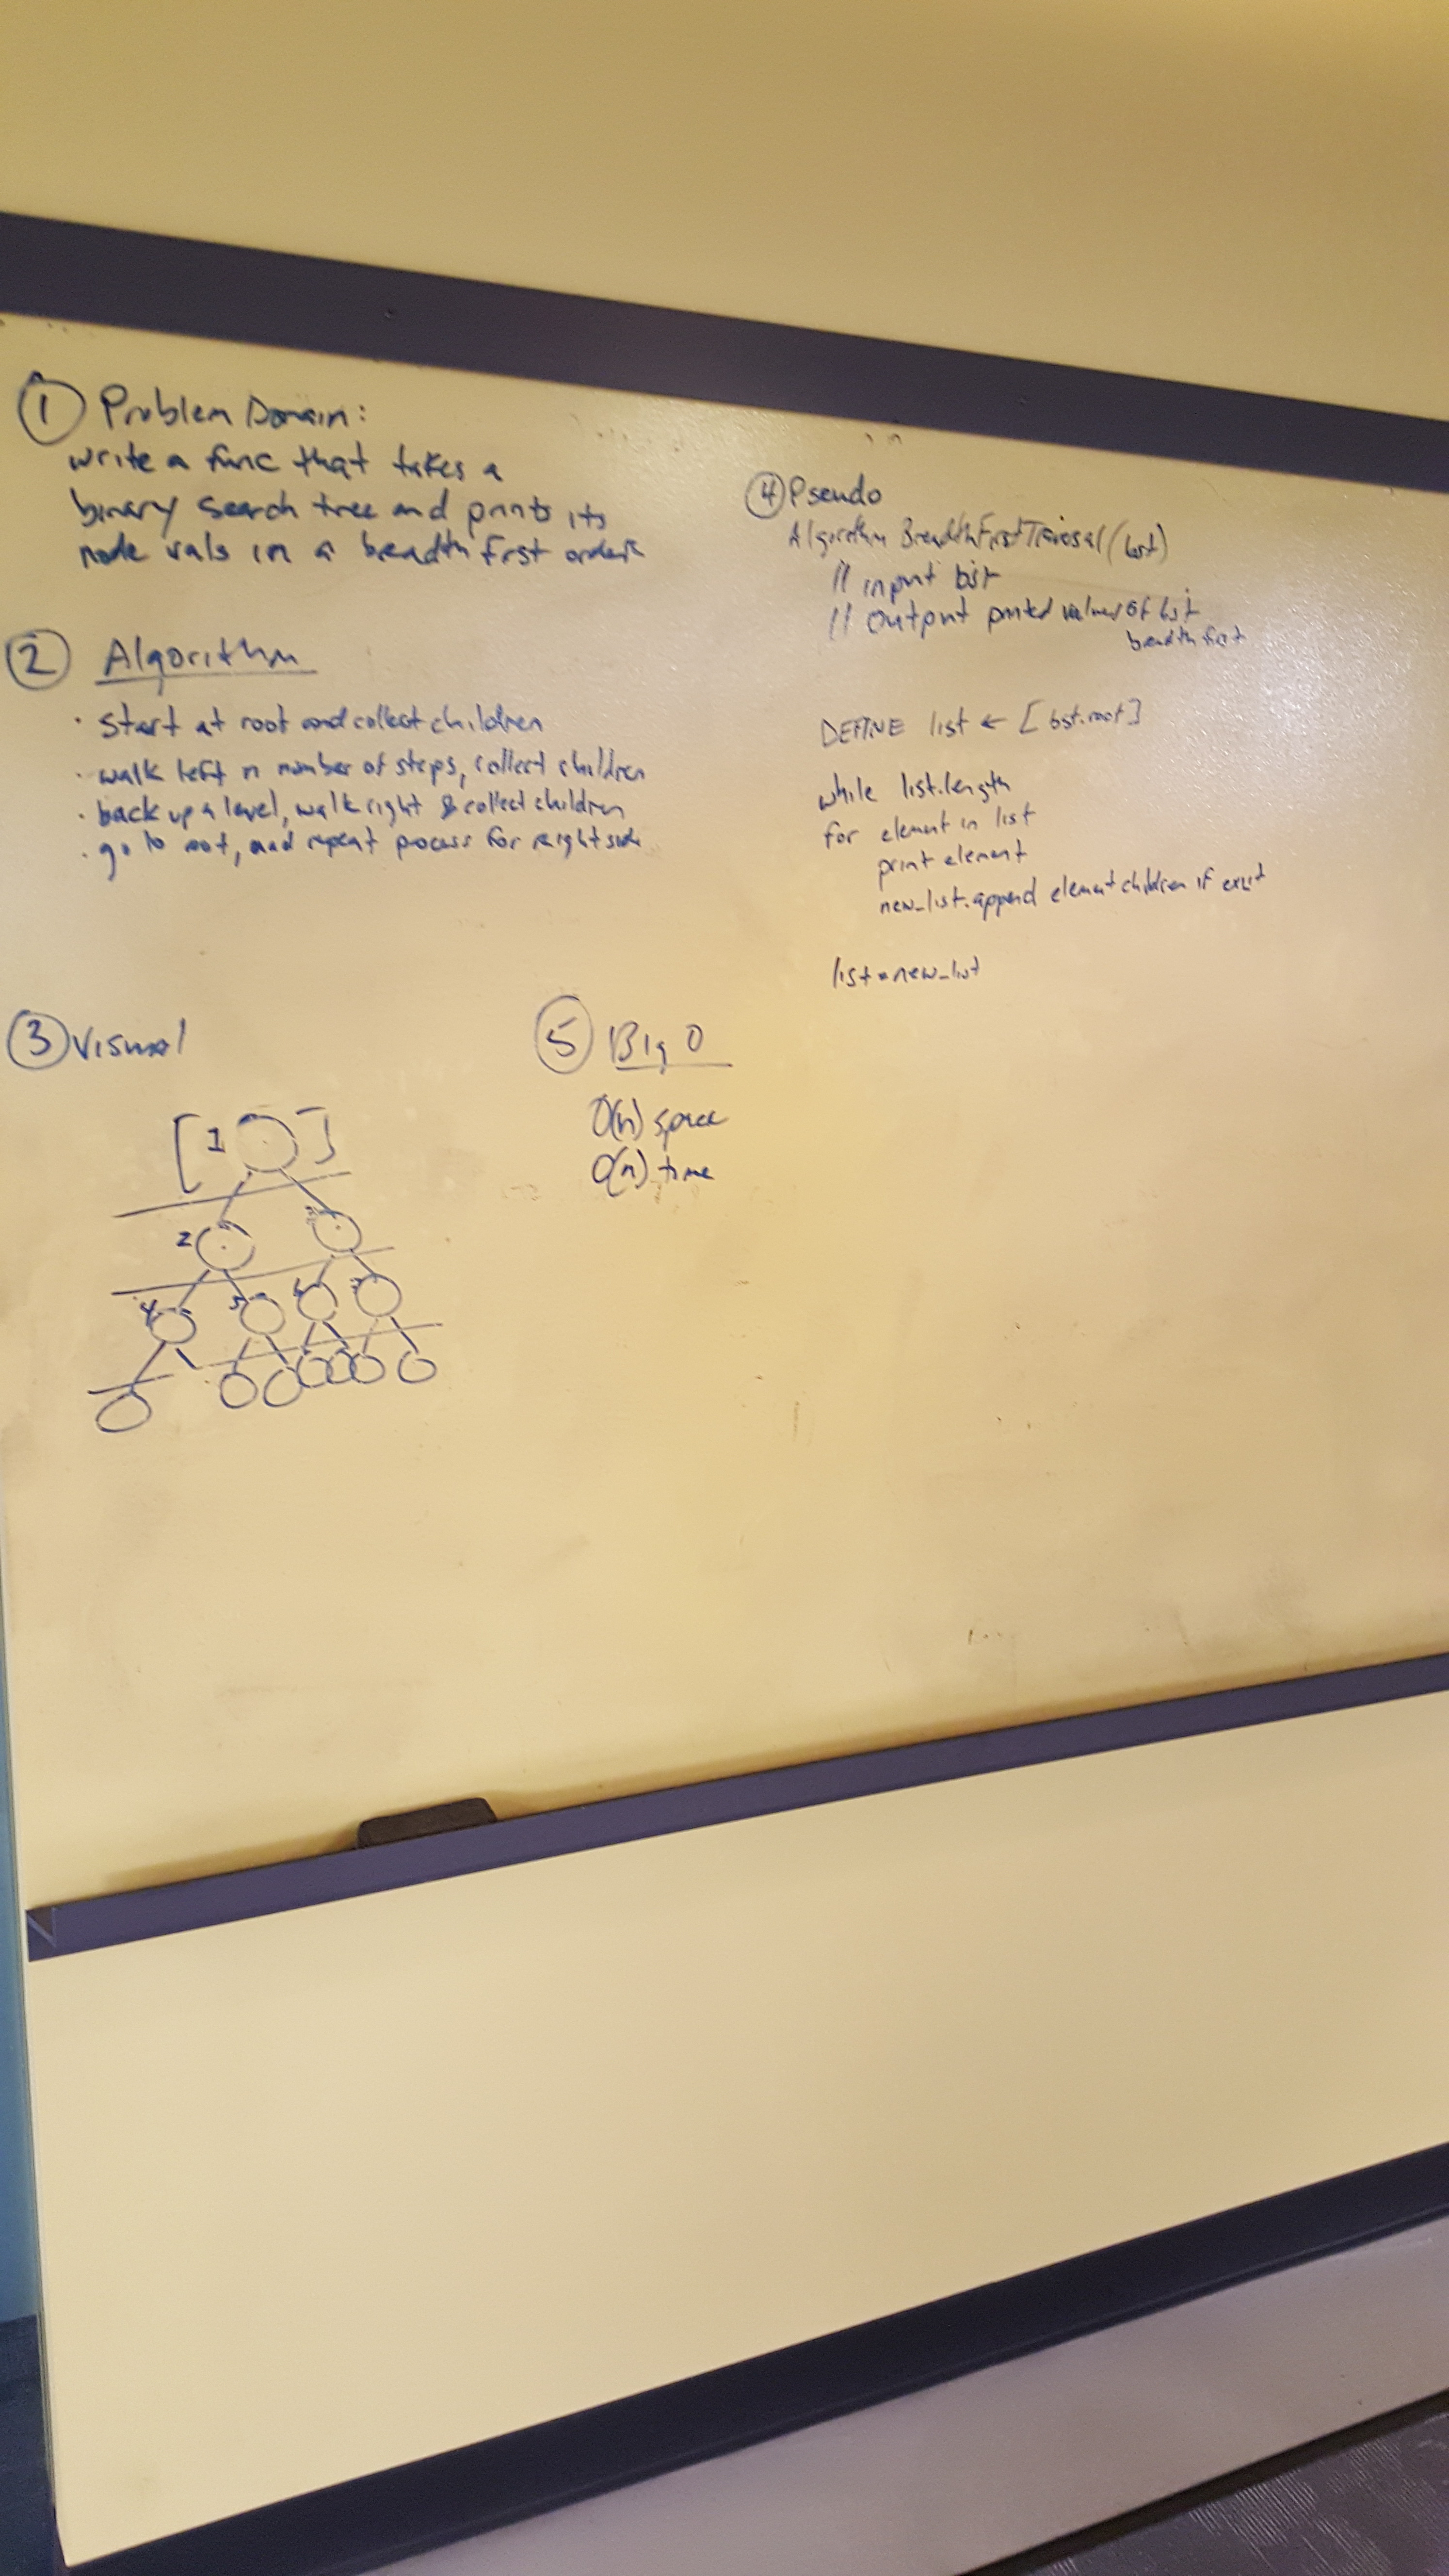 ① Problem Domain:
write a func that takes a
binary search tree and prints its
node vals in a breadth first order
② Algorithm
· start at root and collect children
· walk left n number of steps, collect children
· back up a level, walk right & collect children
· go to root, and repeat process for right side
③ Visual
[ 1 ]
2 3
4 5 6 7
④ Pseudo
Algorithm BreadthFirstTraversal (bst)
// input bst
// output printed values of bst
breadth first
DEFINE list ← [bst.root]
while list.length
for element in list
print element
new_list.append element children if exist
list = new_list
⑤ Big O
O(n) space
O(n) time